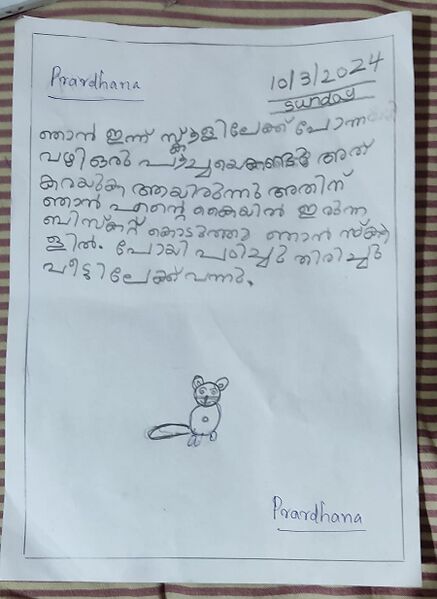 Prardhana
10/3/2024
Sunday
ഞാൻ ഇന്ന് സ്കൂളിലേക്ക് പോന്ന
വഴി ഒരു പൂച്ചയെകണ്ടു അത്
കരയുക ആയിരുന്നു അതിന്
ഞാൻ എന്റെ കൈയിൽ ഇരുന്ന
ബിസ്ക്കറ്റ് കൊടുത്തു ഞാൻ സ്കൂ
ളിൽ. പോയി പഠിച്ചു തിരിച്ചു
വീട്ടിലേക്ക് വന്നു.
Prardhana